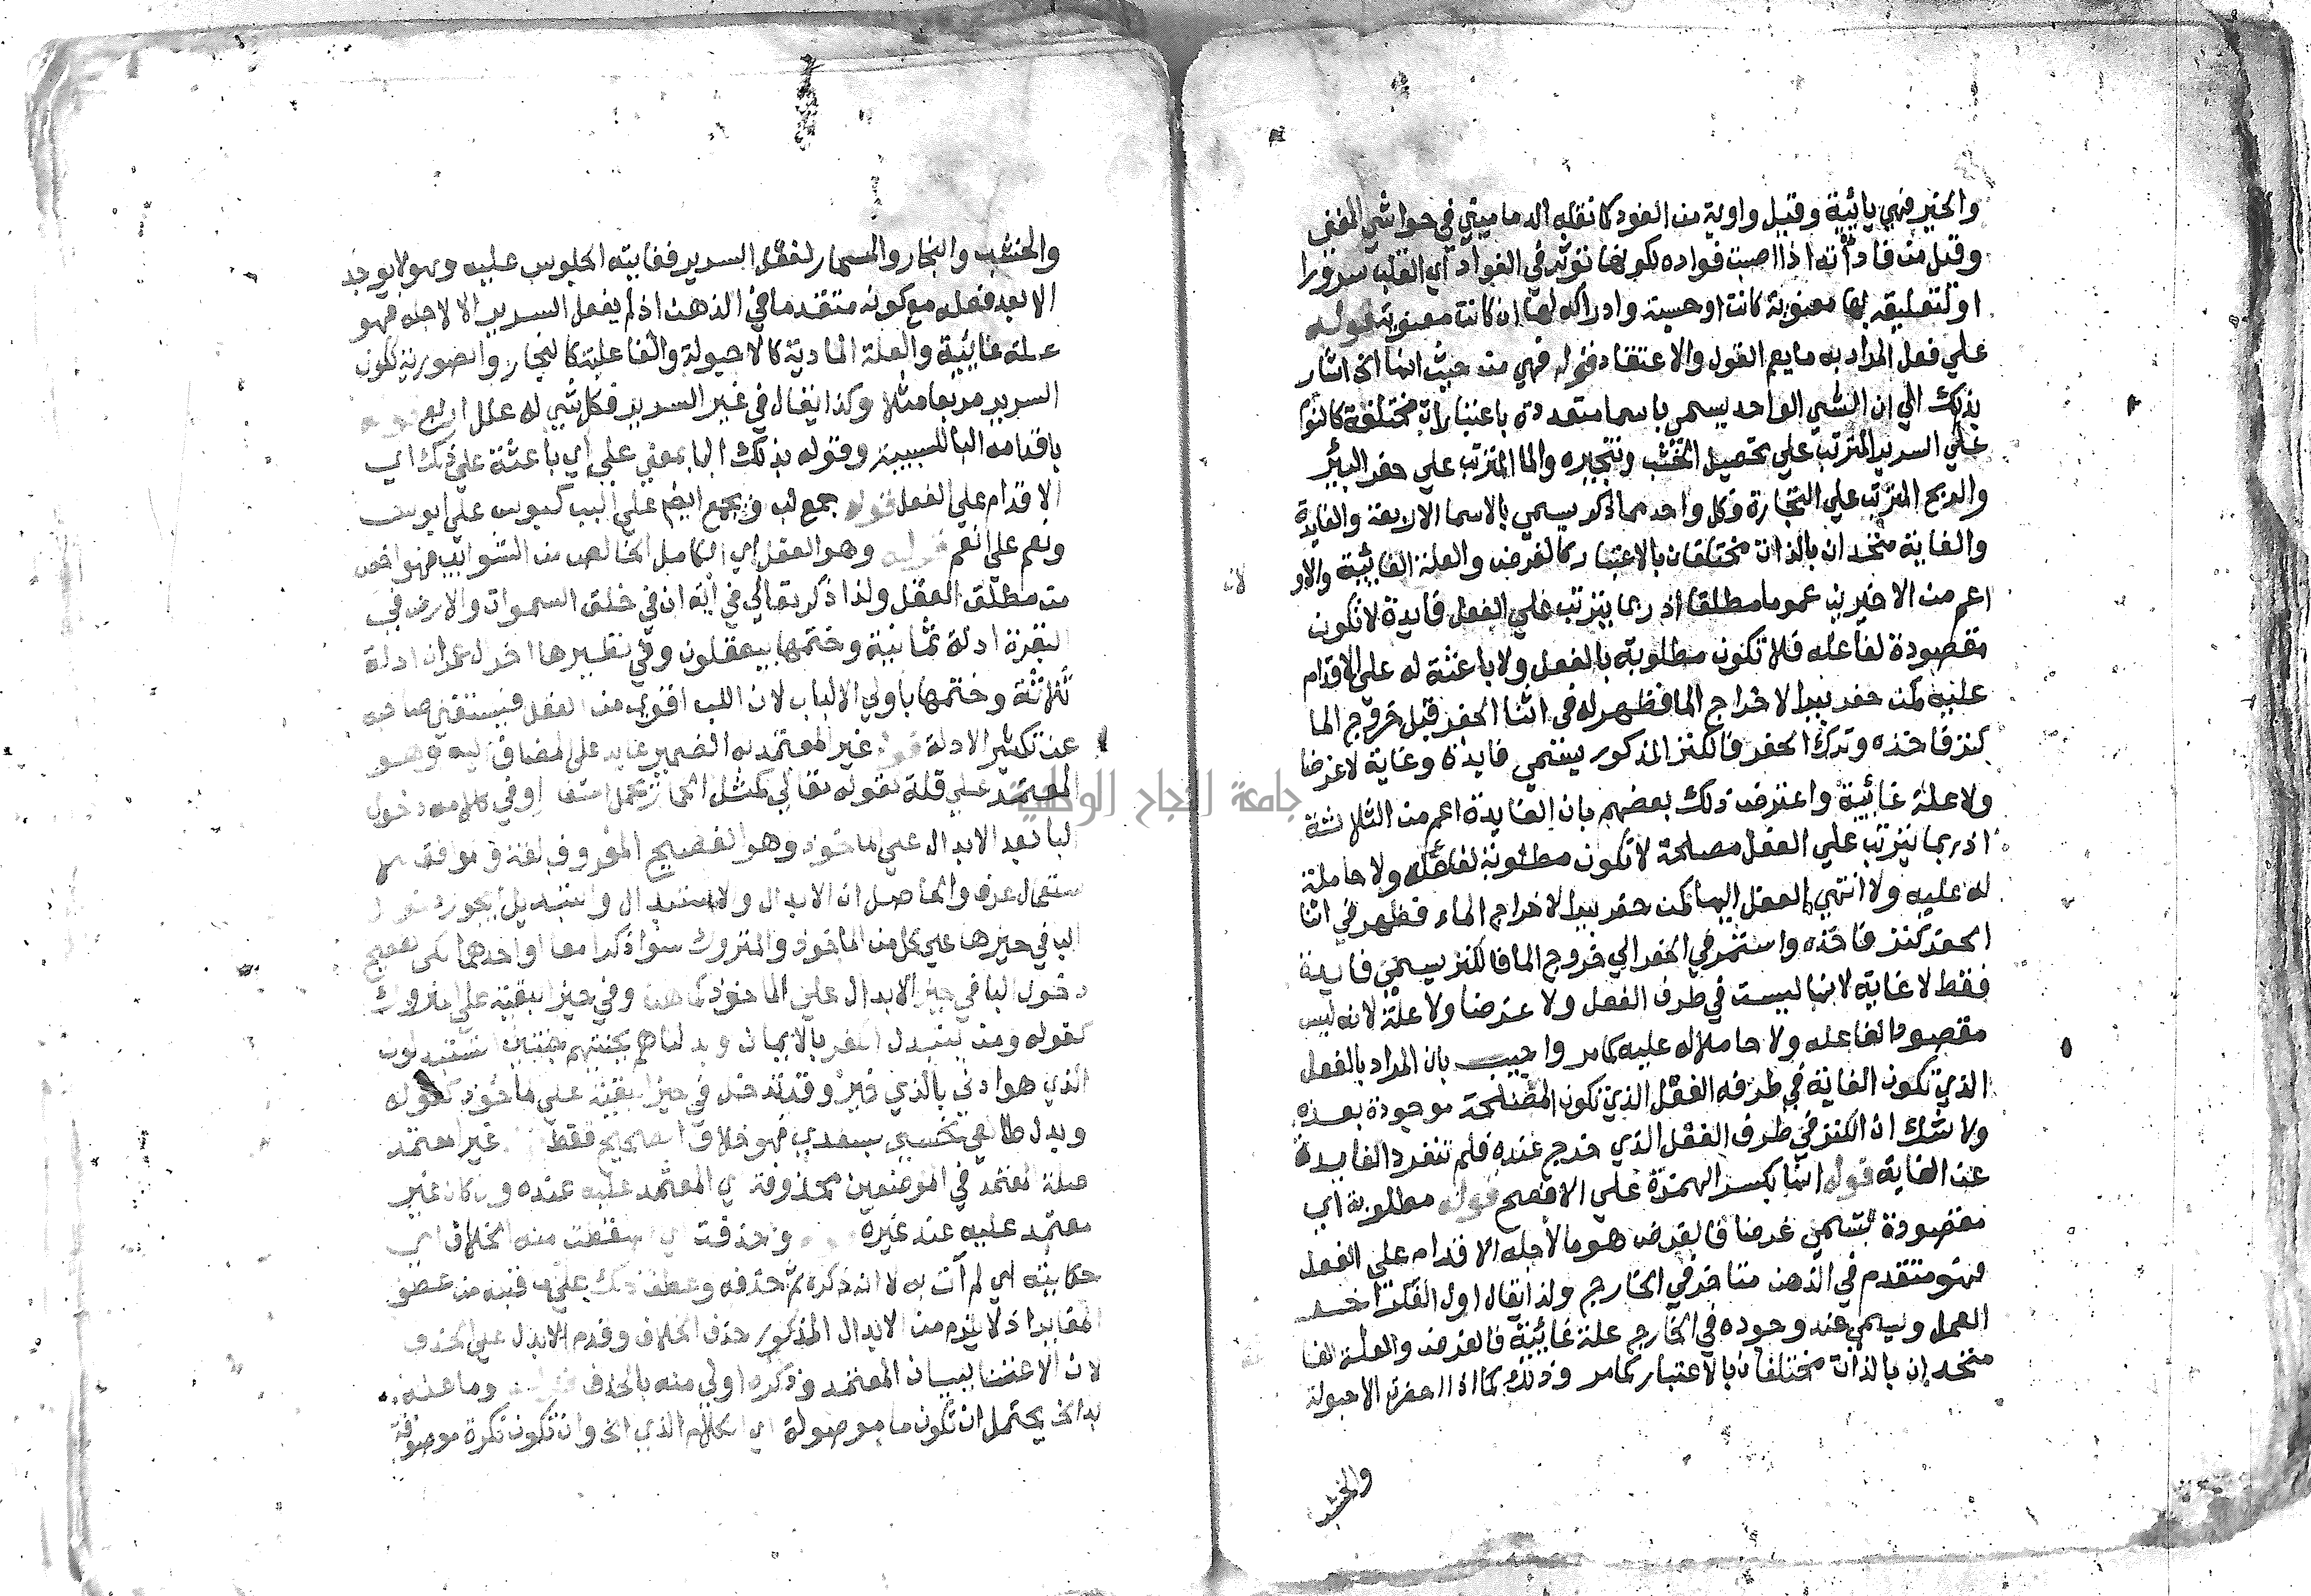 والخير فهي يائية وقيل واوية من الفود كما نقله الدماميني في حواشي المغني
وقيل من فادته اذا اصبت فواده لكونها تؤثر في الفواد اي القلب سرورا
او لتعليقه بها معنوية كانت او حسية وادراكه لها ان كانت معنوية قوله
علي فعل المراد به ما يعم القول والاعتقاد قوله فهي من حيث انها الخ اشار
بذلك الي ان الشي الواحد يسمي باسما متعددة باعتبارات مختلفة كالنوم
علي السرير المترتب علي تحصيل الخشب وتنجيره والما المترتب علي حفر البير
والربح المترتب علي التجارة فكل واحد مما ذكر يسمي بالاسما الاربعة والفايدة
والغاية متحدان بالذات مختلفان بالاعتبار كالغرض والعلة الغائية والاو
لان
اعم من الاخيرين عموما مطلقا اذ ربما يترتب علي الفعل فايدة لا تكون
مقصودة لفاعله فلا تكون مطلوبة بالفعل ولا باعثة له علي الاقدام
عليه كمن حفر بيرا لاخراج الما فظهر له في اثنا الحفر قبل خروج الما
كنز فاخذه وترك الحفر فالكنز المذكور يسمي فايدة وغاية لا غرضا
ولا علة غائية واعترض ذلك بعضهم بان الفايدة اعم من الثلاثة
اذ ربما يترتب علي الفعل مصلحة لا تكون مطلوبة لفاعله ولا حاملة
له عليه ولا انتهي الفعل اليها كمن حفر بيرا لاخراج الماء فظهر في اثنا
الحفر كنز فاخذه واستمر في الحفر الي خروج الما فالكنز يسمي فايدة
فقط لا غاية لانها ليست في طرف الفعل ولا غرضا ولا علة لانه ليس
مقصودا لفاعله ولا حاملا له عليه كما مر واجيب بان المراد بالفعل
الذي تكون الغاية في طرفه الفعل الذي تكون المصلحة موجودة بعده
ولا شك ان الكنز في طرف الفعل الذي خرج عنده فلم تنفرد الفايدة
عن الغاية قوله انها بكسر الهمزة علي الافصح قوله مطلوبة اي
مقصودة تسمي غرضا فالغرض هو ما لاجله الاقدام علي الفعل
فهو متقدم في الذهن متاخر في الخارج ولذا يقال اول الفكر اخر
العمل ويسمي عند وجوده في الخارج علة غائية فالغرض والعلة الغا
متحدان بالذات مختلفان بالاعتبار كما مر وذلك كما اذا احضرت الاحبولة
والخشب
والخشب والنجار والمسمار لفعل السرير فغايته الجلوس عليه وهو لا يوجد
الا بعد فعله مع كونه متقدما في الذهن اذ لم يفعل السرير الا لاجله فهو
علة غائية والعلة المادية كالاحبولة والفاعلية كالنجار والصورية ككون
السرير مربعا مثلا وكذا يقال في غير السرير فكل شي له علل اربع
باقدامه البا للسببية وقوله بذلك البا بمعني علي اي باعثة علي ذلك اي
الاقدام علي الفعل قوله جمع لب ويجمع ايضا علي البب كبوس علي ابوس
ونعم علي انعم قوله وهو العقل اي الكامل الخالص من الشوائب فهو اخص
من مطلق العقل ولذا ذكر تعالي في آية ان في خلق السموات والارض في
البقرة ادلة ثمانية وختمها بيعقلون وفي نظيرها اخر ال عمران ادلة
ثلاثة وختمها باولي الالباب لان اللب اقوي من العقل فيستغني صاحبه
عن تكثير الادلة قوله غير المعتمد له الضمير عايد علي المضاف اليه وهو
المعتمد علي قلة كقوله تعالي كمثل الحمار يحمل اسفارا وفي كلامه دخول
البا بعد الابدال علي الماخوذ وهو الفصيح المعروف لغة
استعمال عرف والحاصل ان الابدال والاستبدال والتبديل يجوز دخول
البا في حيزها علي كل من الماخوذ والمتروك سوا ذكرا معا او احدهما لكن الفصيح
دخول البا في حيز الابدال علي الماخوذ كما هنا وفي حيز البقية علي المتروك
كقوله ومن يتبدل الكفر بالايمان وبدلناهم بجنتيهم جنتين اتستبدلون
الذي هو ادني بالذي هو خير وقد تدخل في حيز البقية علي ماخوذ كقوله
وبدل طالعي نحسي بسعدي فهو خلاف الفصيح فقط غير المعتمد
صلة المعتمد في الموضعين محذوفة اي المعتمد عليه عنده وان كان غير
معتمد عليه عند غيره وحذفت اي اسقطت منه الخلاف اي
حكايته اي لم آت به لا انه ذكره ثم حذفه وعطف ذلك علي ما قبله من عطف
المغاير اذ لا يلزم من الابدال المذكور حذف الخلاف وقدم الابدال علي الحذف
لان الاعتنا ببيان المعتمد وذكره اولي منه بالحذف قوله وما عنه
بدا الخ يحتمل ان تكون ما موصولة اي الكلام الذي الخ وان تكون نكرة موصوفة
جامعة النجاح الوطنية